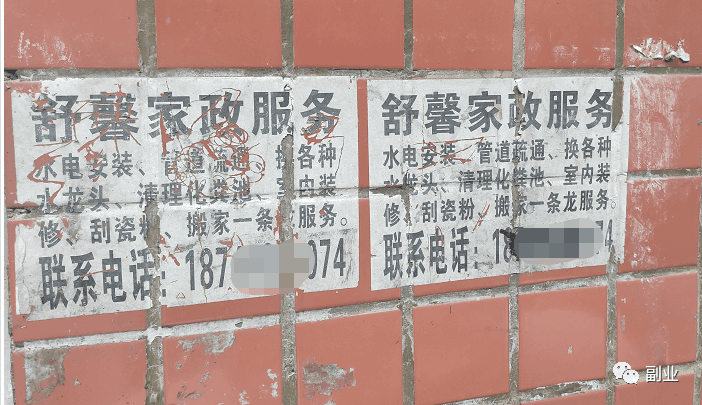 舒馨家政服务
水电安装、管道疏通、换各种
水龙头、清理化粪池、室内装
修、刮瓷粉、搬家一条龙服务。
联系电话：187 074
舒馨家政服务
水电安装、管道疏通、换各种
水龙头、清理化粪池、室内装
修、刮瓷粉、搬家一条龙服务。
联系电话：18 4
副业